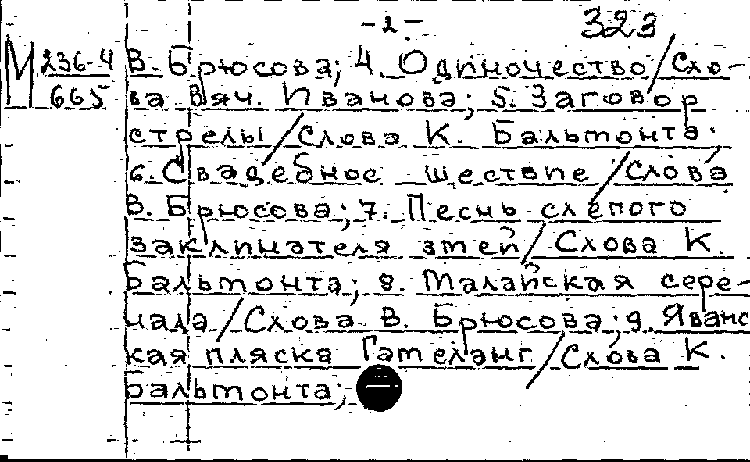 -2-
323
М 236-4
665
В. Брюсова; 4. Одиночество/Сло-
ва Вяч. Иванова; 5. Заговор
стрелы/Слова К. Бальмонта;
6. Свадебное шествие/Слова
В. Брюсова; 7. Песнь слепого
заклинателя змей/Слова К.
Бальмонта; 8. Малайская сере-
нада/Слова В. Брюсова; 9. Яванс
кая пляска Гамеланг/Слова К.
Бальмонта;